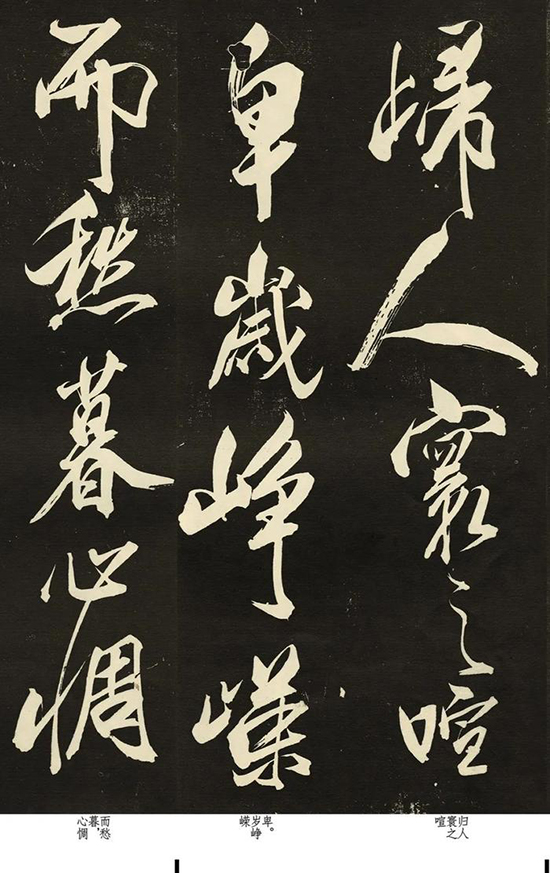 歸人寰之喧
卑歲崢嶸
而愁暮心惆
归人
寰之
喧
卑。
岁峥
嵘
而愁
暮，
心惆